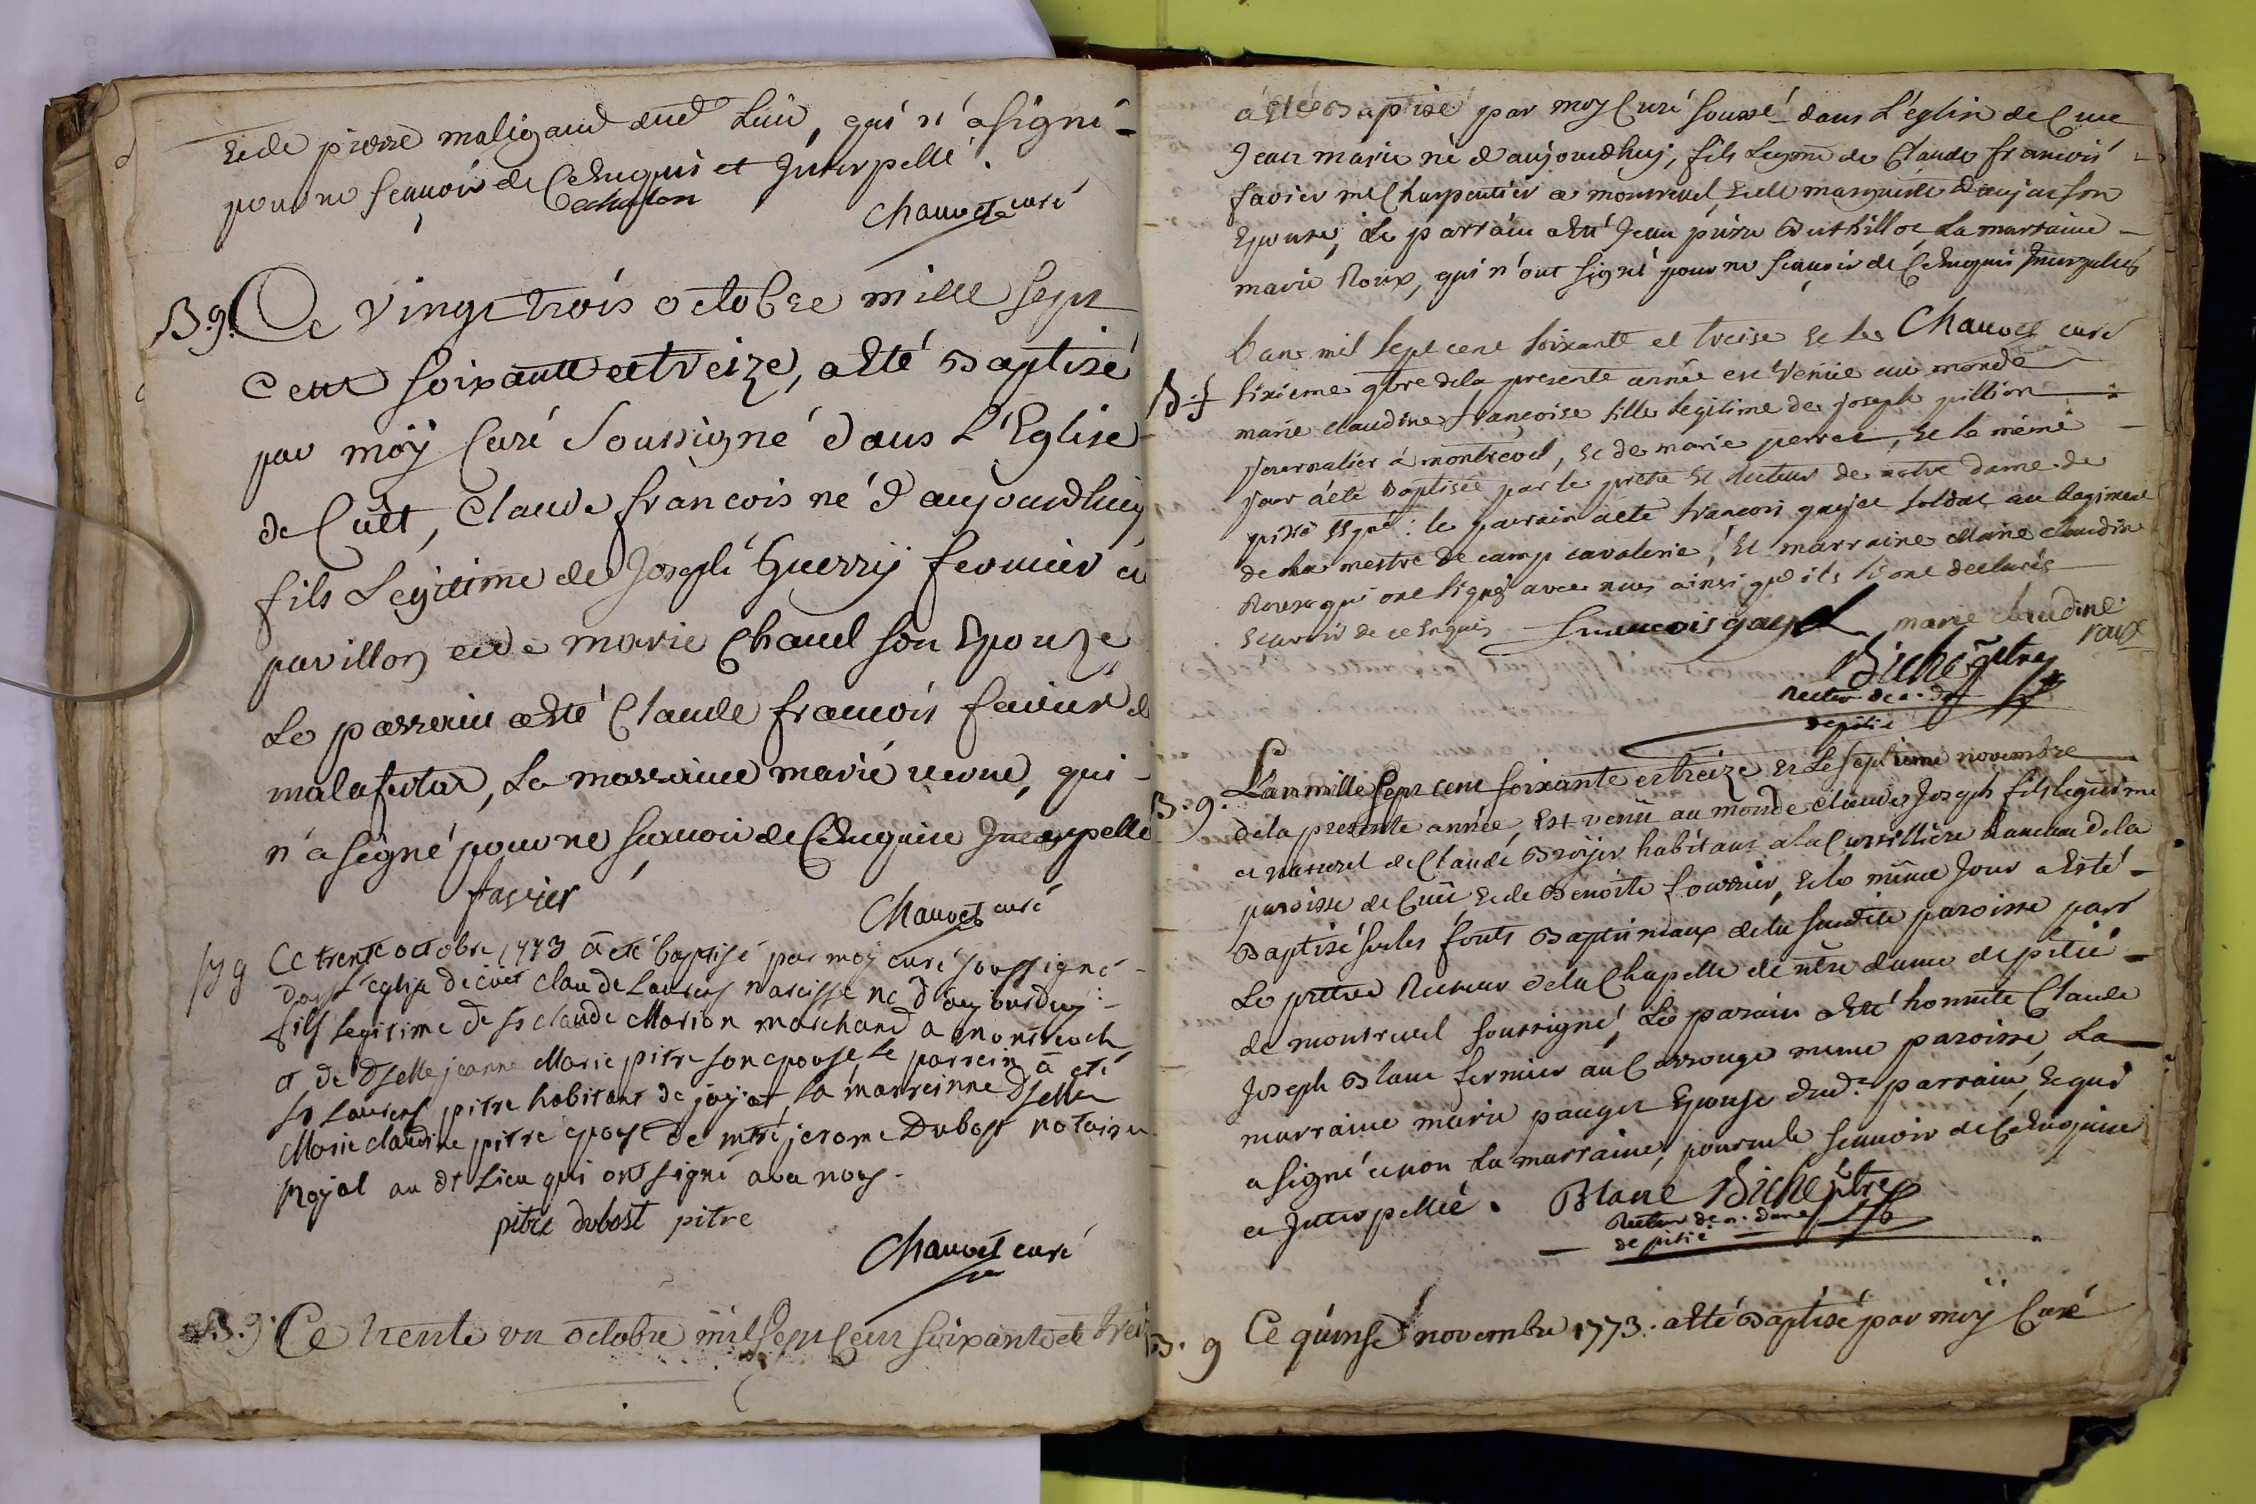 et de pierre maligand dud Lieu, qui n'a signé
pour ne sçauoir de Ce Enquis et Interpellé.
Chauvet curé
B. g. Ce vingt trois octobre mille sept
Cent soixante et treize, a Eté Baptisé
par moÿ Curé Soussigné dans L'Eglise
de Cuêt, Claude francois né d'aujourdhuy
fils Légitime de Joseph Guerrÿ fermier au
pavillon et de marie Chanel son Epouze
Le parrain a Eté Claude francois favier de
malafretaz, La marraine marie uenue, qui
n'a signé pour ne scauoir de Ce Enquise Interpelle
favier
Chauvet curé
g Ce trente octobre 1773 à eté baptisé par moÿ curé soussigné
dans l'eglise de cuet claude Laurens narcisse né d'aujourduy
fils legitime de sr claude Marion marchand a montrevel
et de dselle jeanne Marie pitre son epouse, le parrein à eté
sr Laurens pitre habitant de jayat, la marreinne dselle
Marie claudine pitre epouse de mtre jerome Dubost notaire
Royal au dt Lieu qui ont signé avec nous.
pitre dubost pitre
Chauvet curé
B. g. Ce trente un octobre mil Sept Cent soixante et treiz
a Eté Baptisé par moy Curé soussé dans L'églize de Cuet
Jean marie né d'aujourdhuy, fils Legme de Claude francois
favier me Charpentier a montrevel, et de marguerite daujat son
Epouse, Le parrain a Eté Jean pierre Berthilloz La marraine
marie Roux, qui n'ont signé pour ne sçauoir de Ce Enquis Interpellés
Chauvet curé
B. f L'an mil sept cent soixante et treise et le
sixieme 9bre de la presente année est Venüe au monde
marie claudine françoise fille legitime de joseph pillion
journalier à montrevel, et de marie perret, et le même
jour à eté Baptisée par le prêtre et recteur de notre dame de
pitié ssgné : le parrain à eté francois gayet soldat au Regiment
de la mestre de camp cavalerie, et marraine Marie claudine
Roux qui ont signé avec nous ainsi qu'ils l'ont declarés
scavoir de ce Enquis
francois gayet marie claudine
roux
Biche ptre
Recteur de n. d.
de pitié
B. g. L'an mille Sept cent soixante et treize et Le septieme novembre
de la presente année, Est venü au monde Claude Joseph fils legitime
et naturel de Claude Broÿer habitant a la Cuvillière hameau de la
paroisse de Cuêt et de Benoite fourrier, et le même Jour a Esté
Baptisé sur les fonts Baptismaux de la susdite paroisse par
Le prêtre Recteur de la Chapelle de ntre dame de pitié
de montrevel soussigné, Le parain a Eté honnête Claude
Joseph Blanc fermier au Carrouge meme paroisse, La
marraine marie pauget Epouse dud. parrain, et qui
a signé et non La marraine, pour ne le scauoir de Ce Enquise
et Interpellée. Blanc Biche ptre
Recteur de n. dame
de pitié
B. g Ce quinse novembre 1773. a Eté Baptisé par moÿ Curé